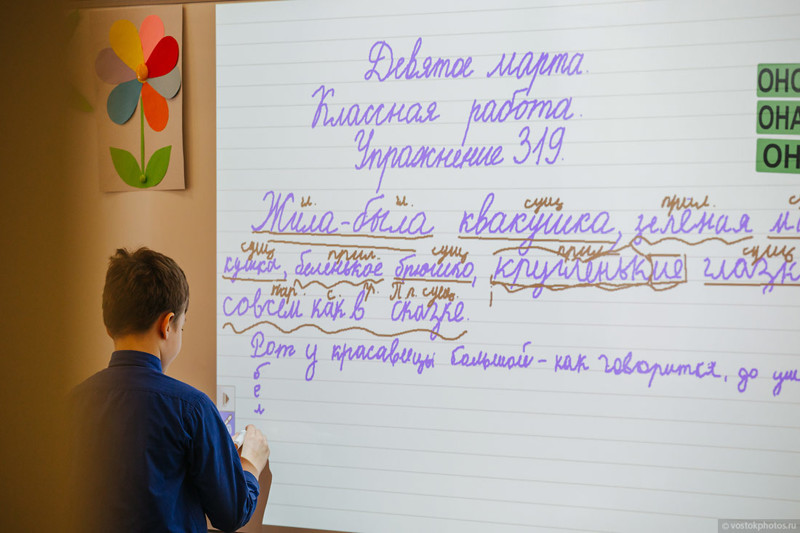 Девятое марта.
Классная работа.
Упражнение 319.
сущ прил.
Жила-была квакушка, зелёная ма
сущ прил. сущ прил. сущ
кушка, беленькое брюшко, кругленькие глазк
нар. с. П.п. сущ.
совсем как в сказке.
Рот у красавицы большой – как говорится, до уш
б
е
л
ОНО
ОНА
ОН
© vostokphotos.ru